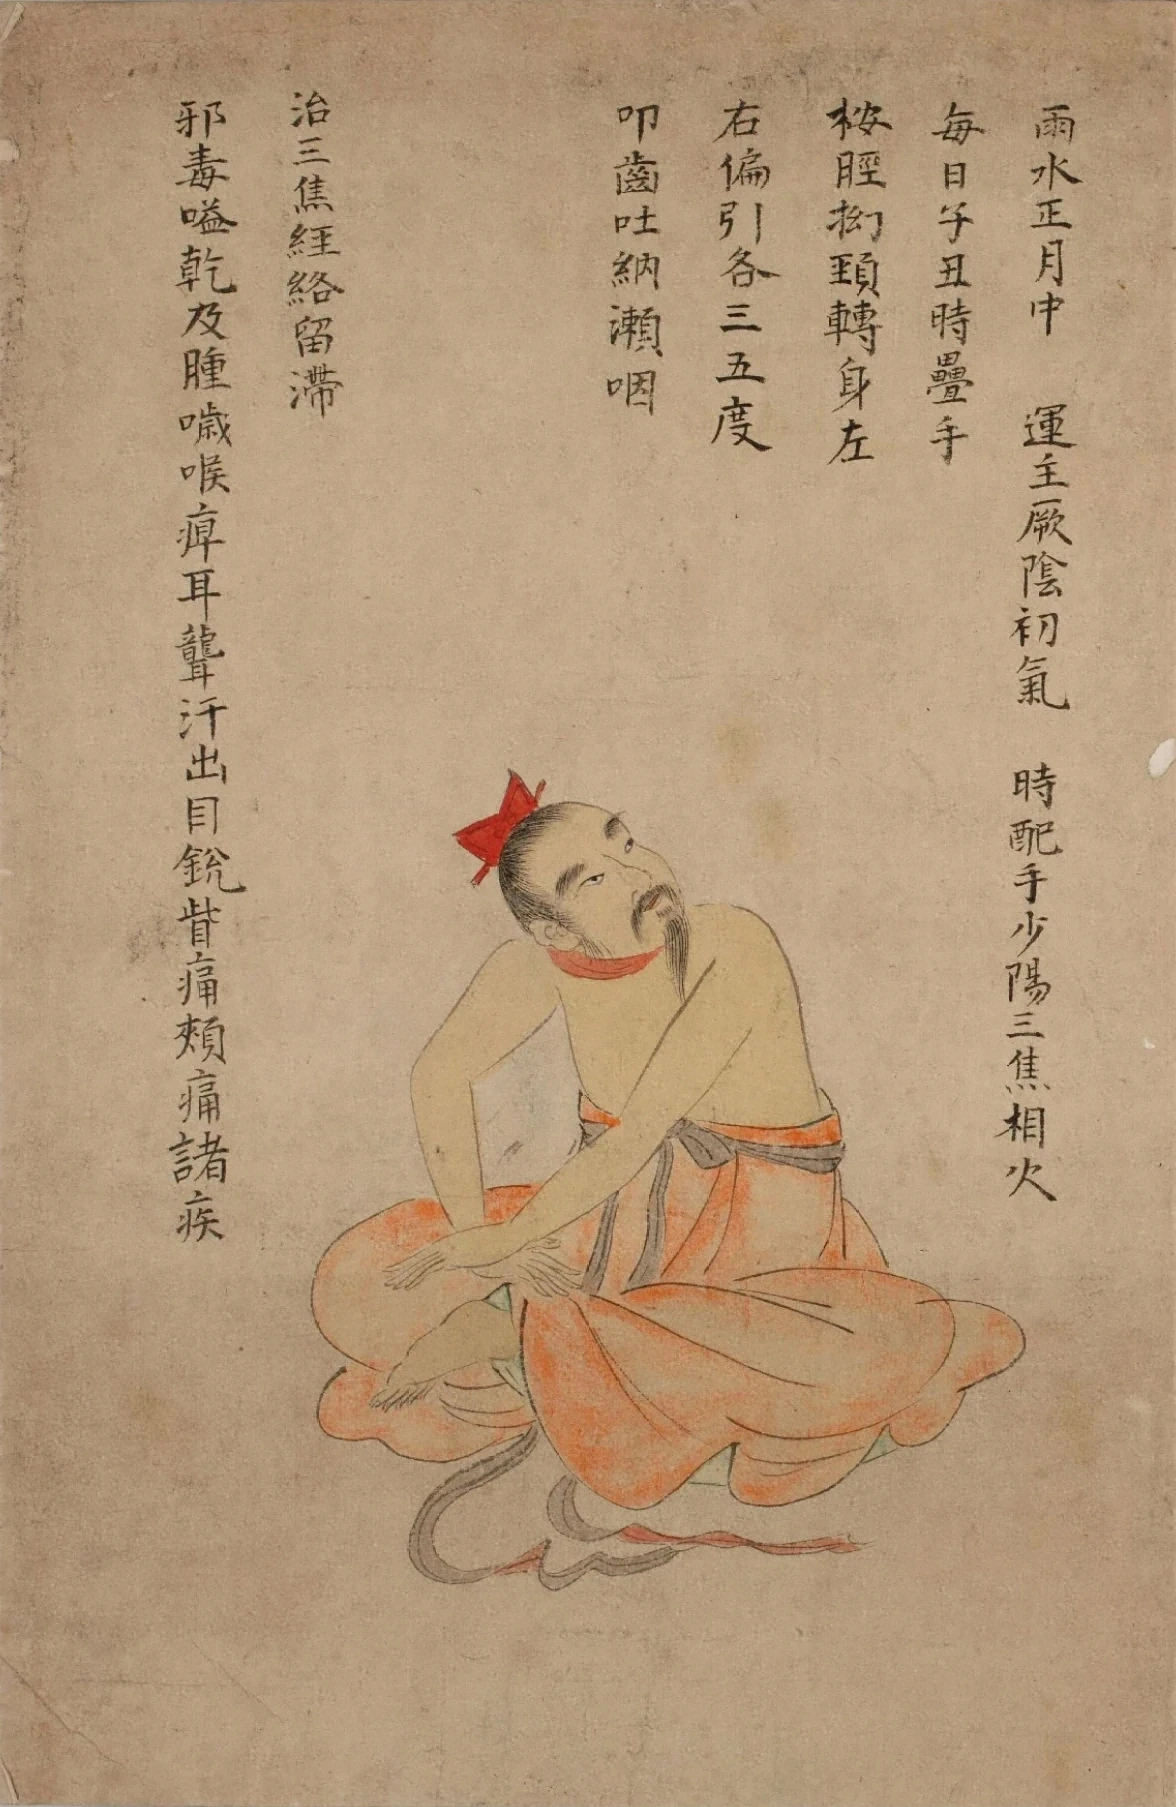 雨水正月中　運主厥陰初氣　時配手少陽三焦相火
每日子丑時疊手
桉脛拗頸轉身左
右偏引各三五度
叩齒吐納瀬咽
治三焦経絡留滯
邪毒嗌乾及腫噦喉痺耳聾汗出目銳眥痛頰痛諸疾